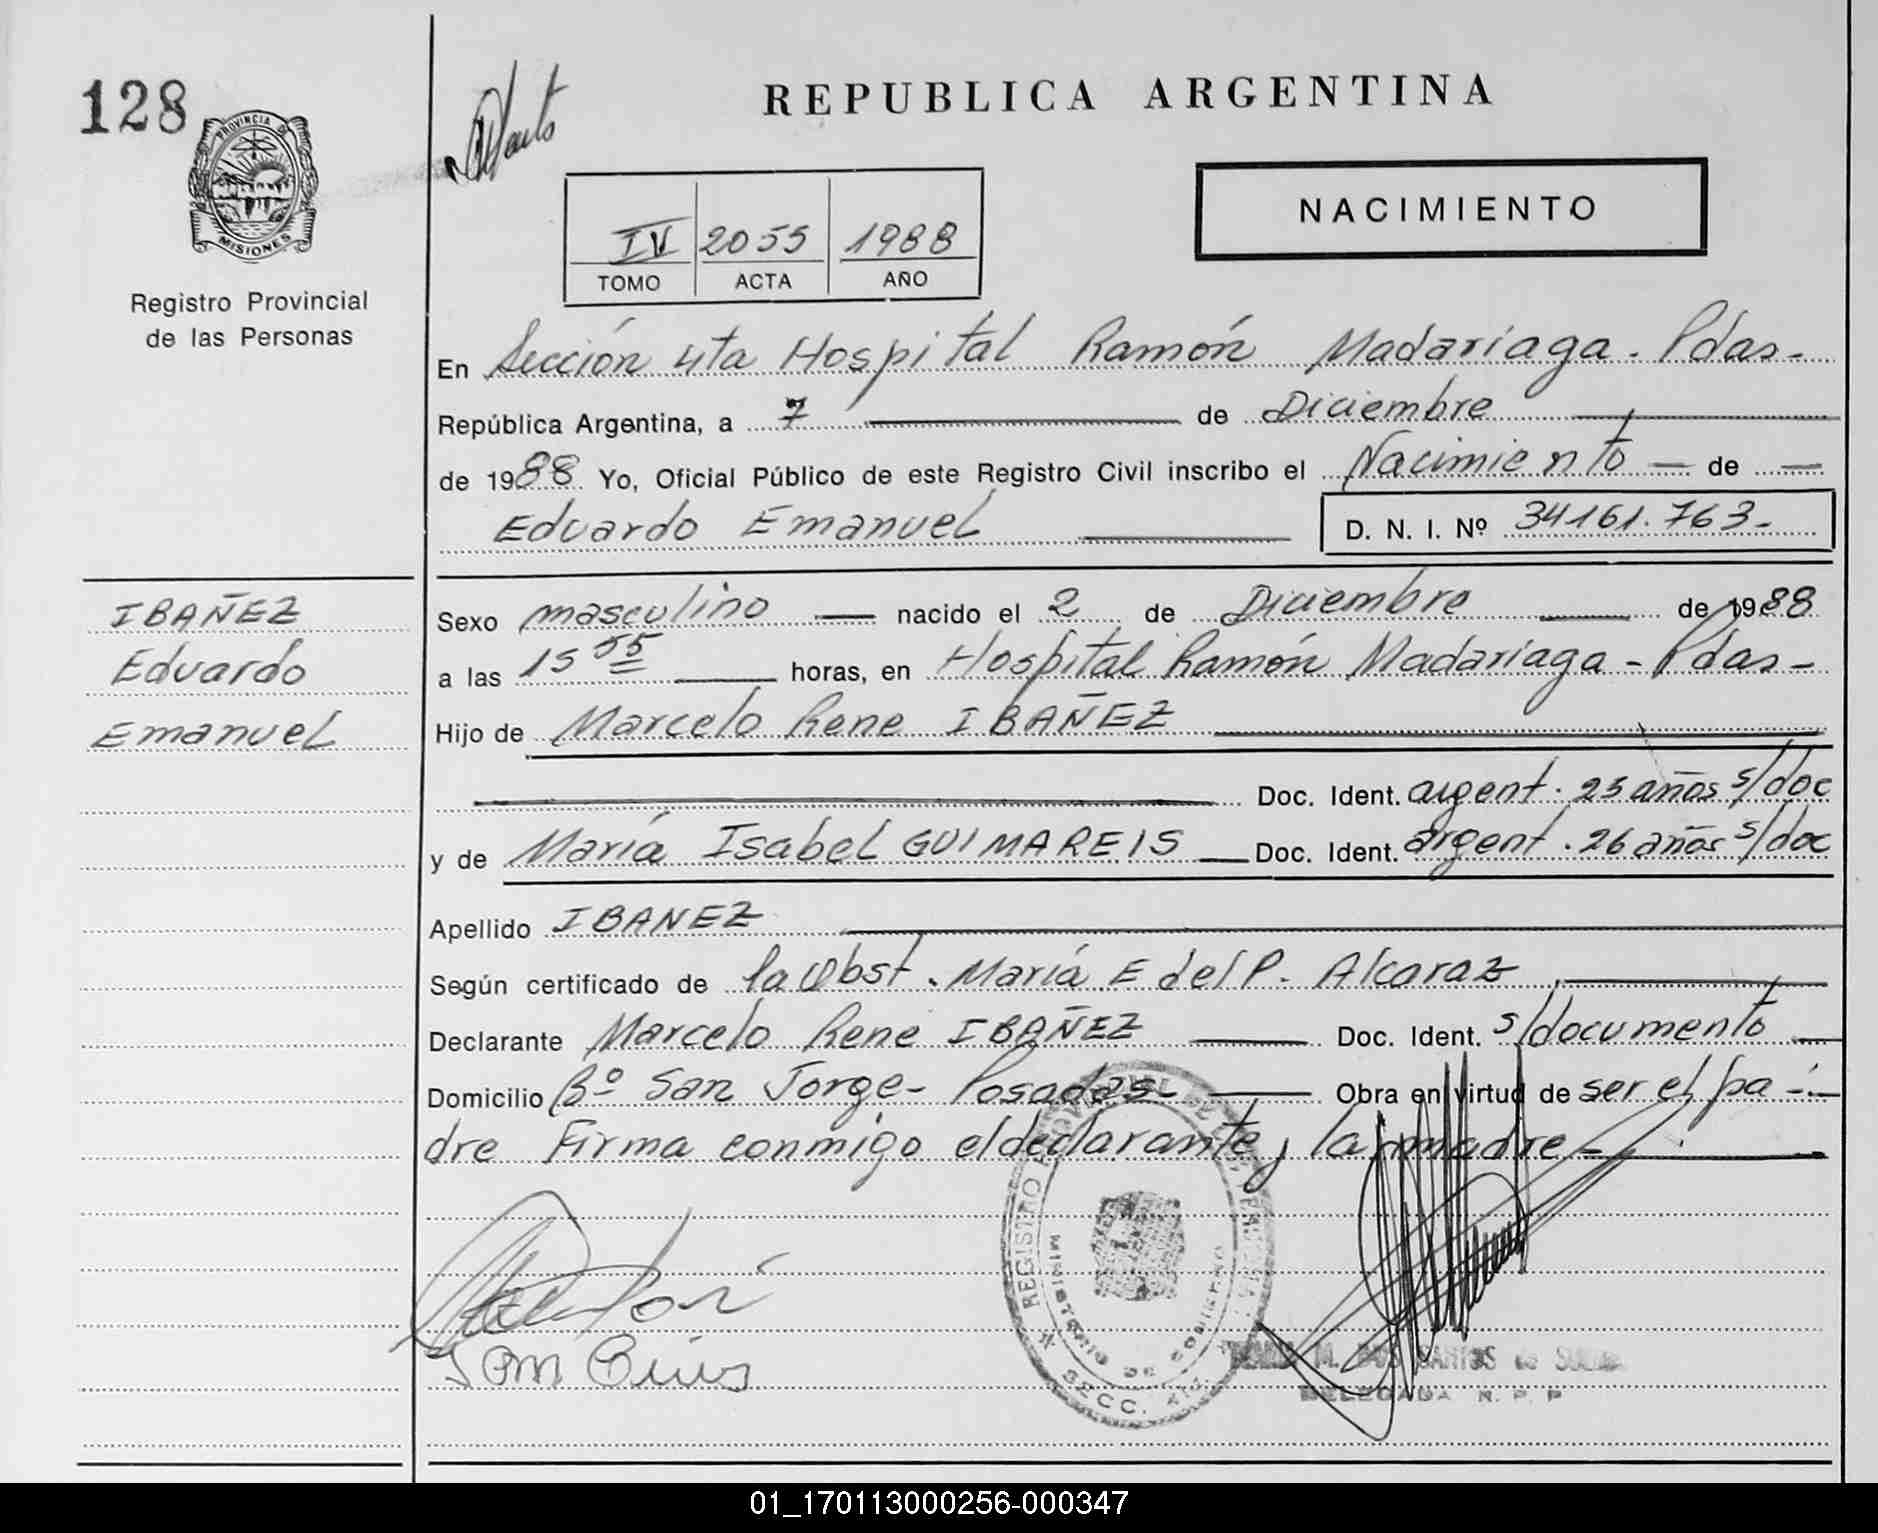 128
REPUBLICA ARGENTINA
PROVINCIA DE
MISIONES
Registro Provincial
de las Personas
IV 2055 1988
TOMO ACTA AÑO
NACIMIENTO
En Sección 4ta Hospital Ramón Madariaga - Pdas-
República Argentina, a 7 de Diciembre
de 1988 Yo, Oficial Público de este Registro Civil inscribo el Nacimiento — de —
Eduardo Emanuel D. N. I. Nº 34161.763-
IBAÑEZ
Eduardo
Emanuel
Sexo masculino — nacido el 2 de Diciembre de 1988
a las 15 55 horas, en Hospital Ramón Madariaga - Pdas-
Hijo de Marcelo Rene IBAÑEZ
Doc. Ident. argent. 25 años s/doc
y de María Isabel GUIMAREIS — Doc. Ident. argent. 26 años s/doc
Apellido IBANEZ
Según certificado de la Obst. María E del P. Alcaraz
Declarante Marcelo Rene IBAÑEZ Doc. Ident. s/documento
Domicilio Bº San Jorge- Posadas Obra en virtud de ser el pa-
dre Firma conmigo el declarante y la madre-
REGISTRO PROVINCIAL DE LAS PERSONAS
MINISTERIO DE GOBIERNO
SECC. 4ta.
M. DOS SANTOS de
DELEGADA R. P. P
01_170113000256-000347